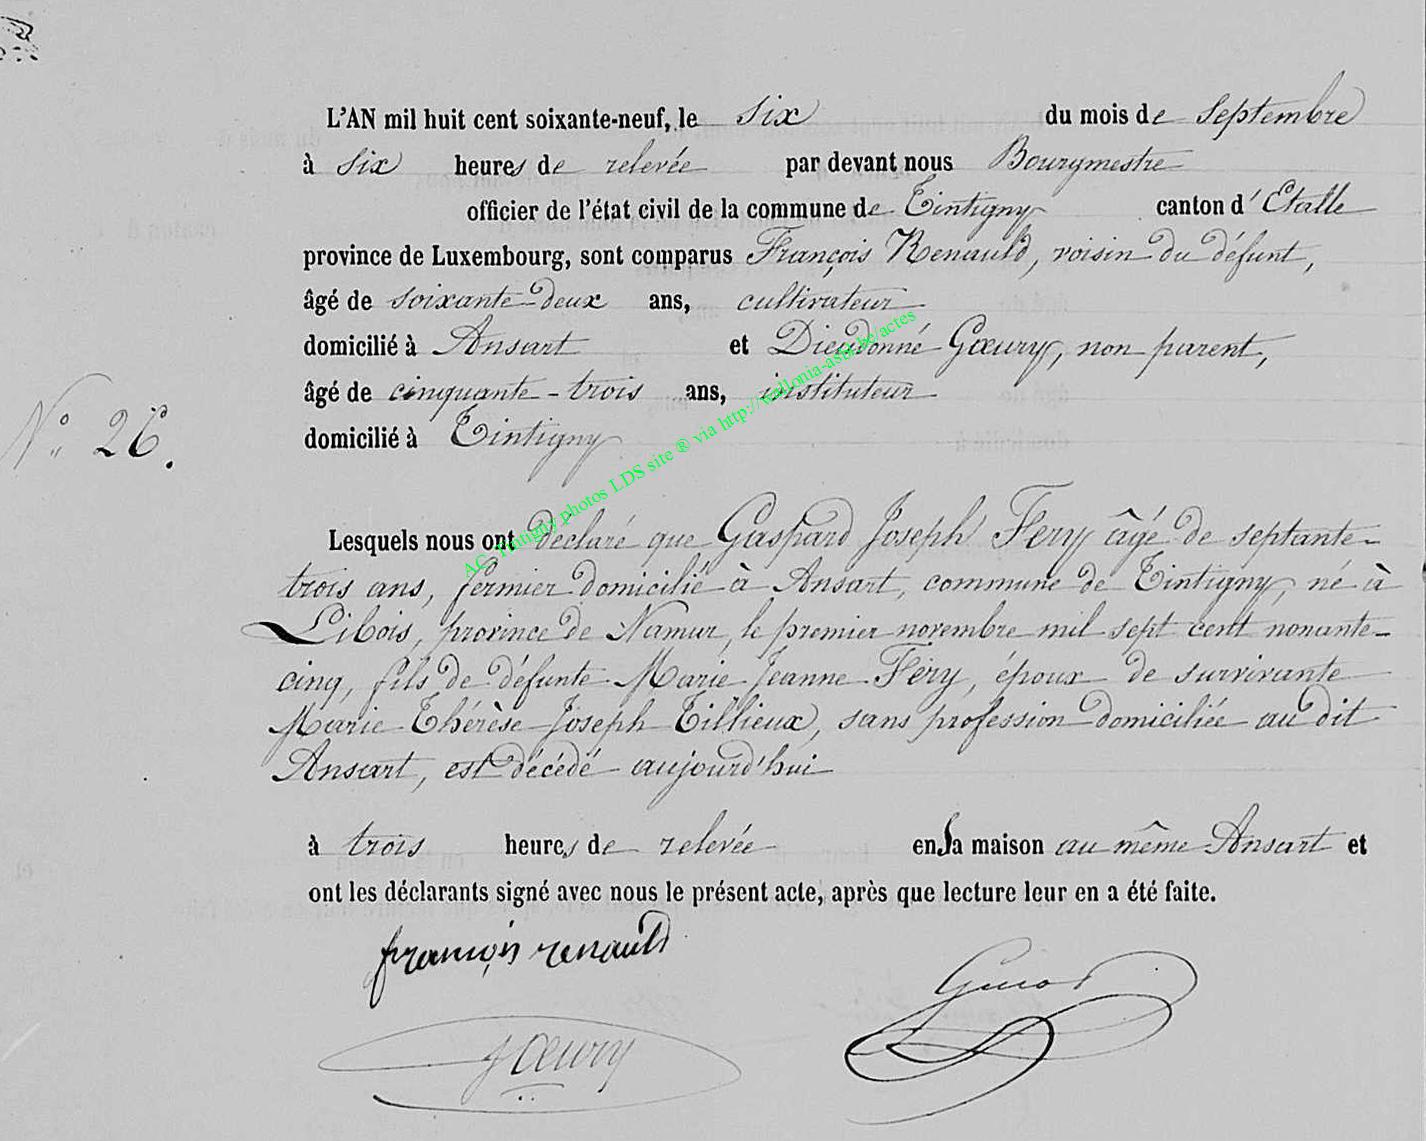 L'AN mil huit cent soixante-neuf, le six du mois de Septembre
à six heures de relevée par devant nous Bourgmestre
officier de l'état civil de la commune de Tintigny canton d'Etalle
province de Luxembourg, sont comparus François Renauld, voisin du défunt,
âgé de soixante-deux ans, cultivateur
domicilié à Ansart et Dieudonné Gœury, non parent,
âgé de cinquante-trois ans, instituteur
N° 26.
domicilié à Tintigny
AC Tintigny photos LDS site ® via http://wallonia-asbl.be/actes
Lesquels nous ont déclaré que Gaspard Joseph Fery âgé de septante-
trois ans, fermier domicilié à Ansart, commune de Tintigny, né à
Libois, province de Namur, le premier novembre mil sept cent nonante-
cinq, fils de défunte Marie Jeanne Féry, époux de survivante
Marie Thérèse Joseph Tillieux, sans profession domiciliée au dit
Ansart, est décédé aujourd'hui
à trois heures de relevée en sa maison au même Ansart et
ont les déclarants signé avec nous le présent acte, après que lecture leur en a été faite.
françois renauld
Gœury